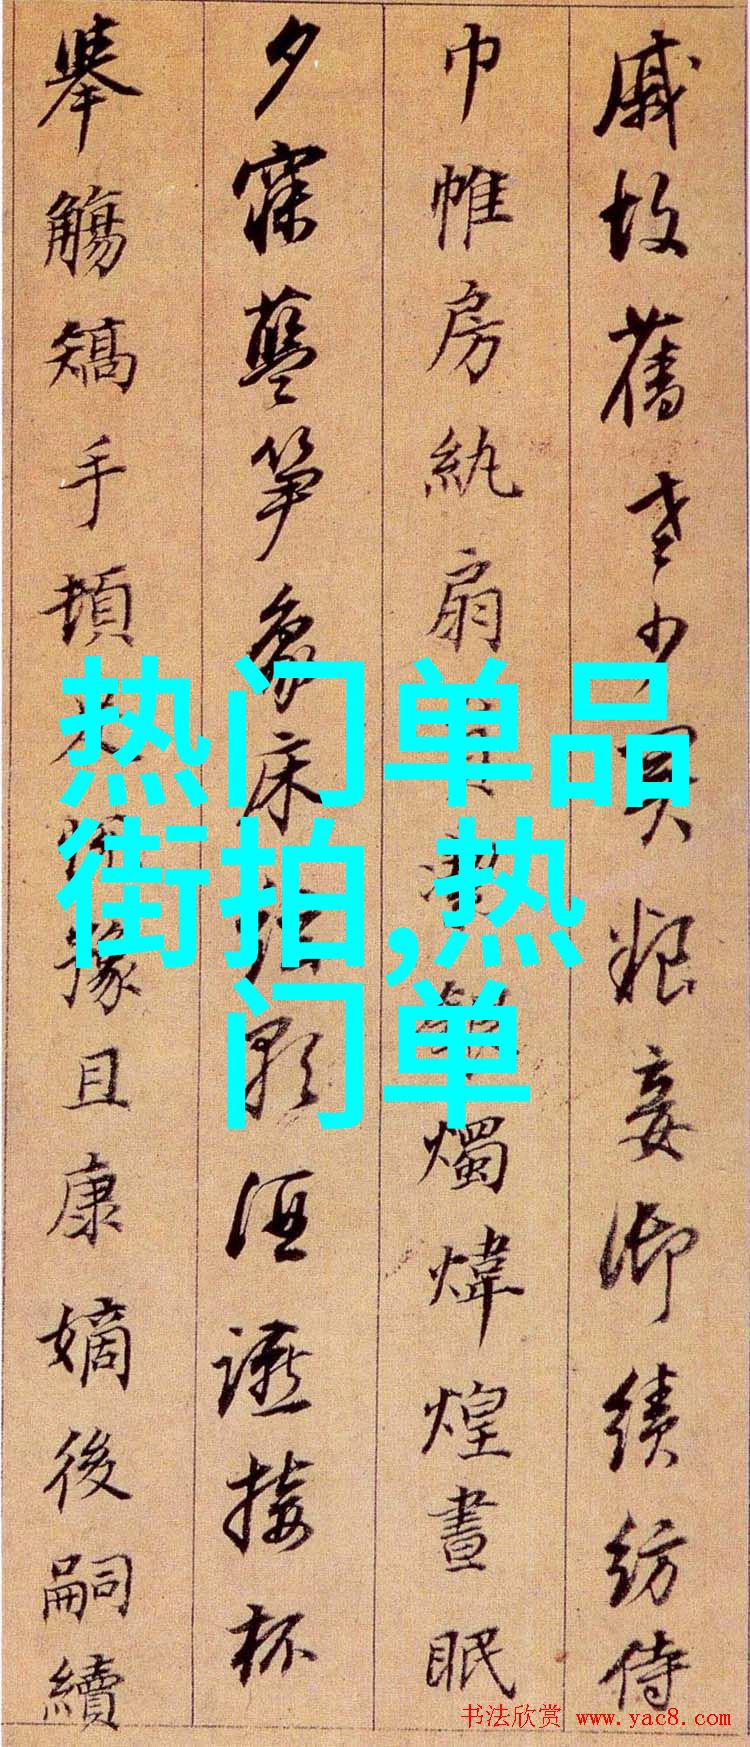 戚故舊老少異粮妾御績紡侍
巾帷房紈扇燭煒煌晝眠
夕寐藍笋象床歌酒讌接杯
舉觴矯手頓豫且康嫡後嗣續
热门单品
街拍,热
门单
书法欣赏 www.yac8.com